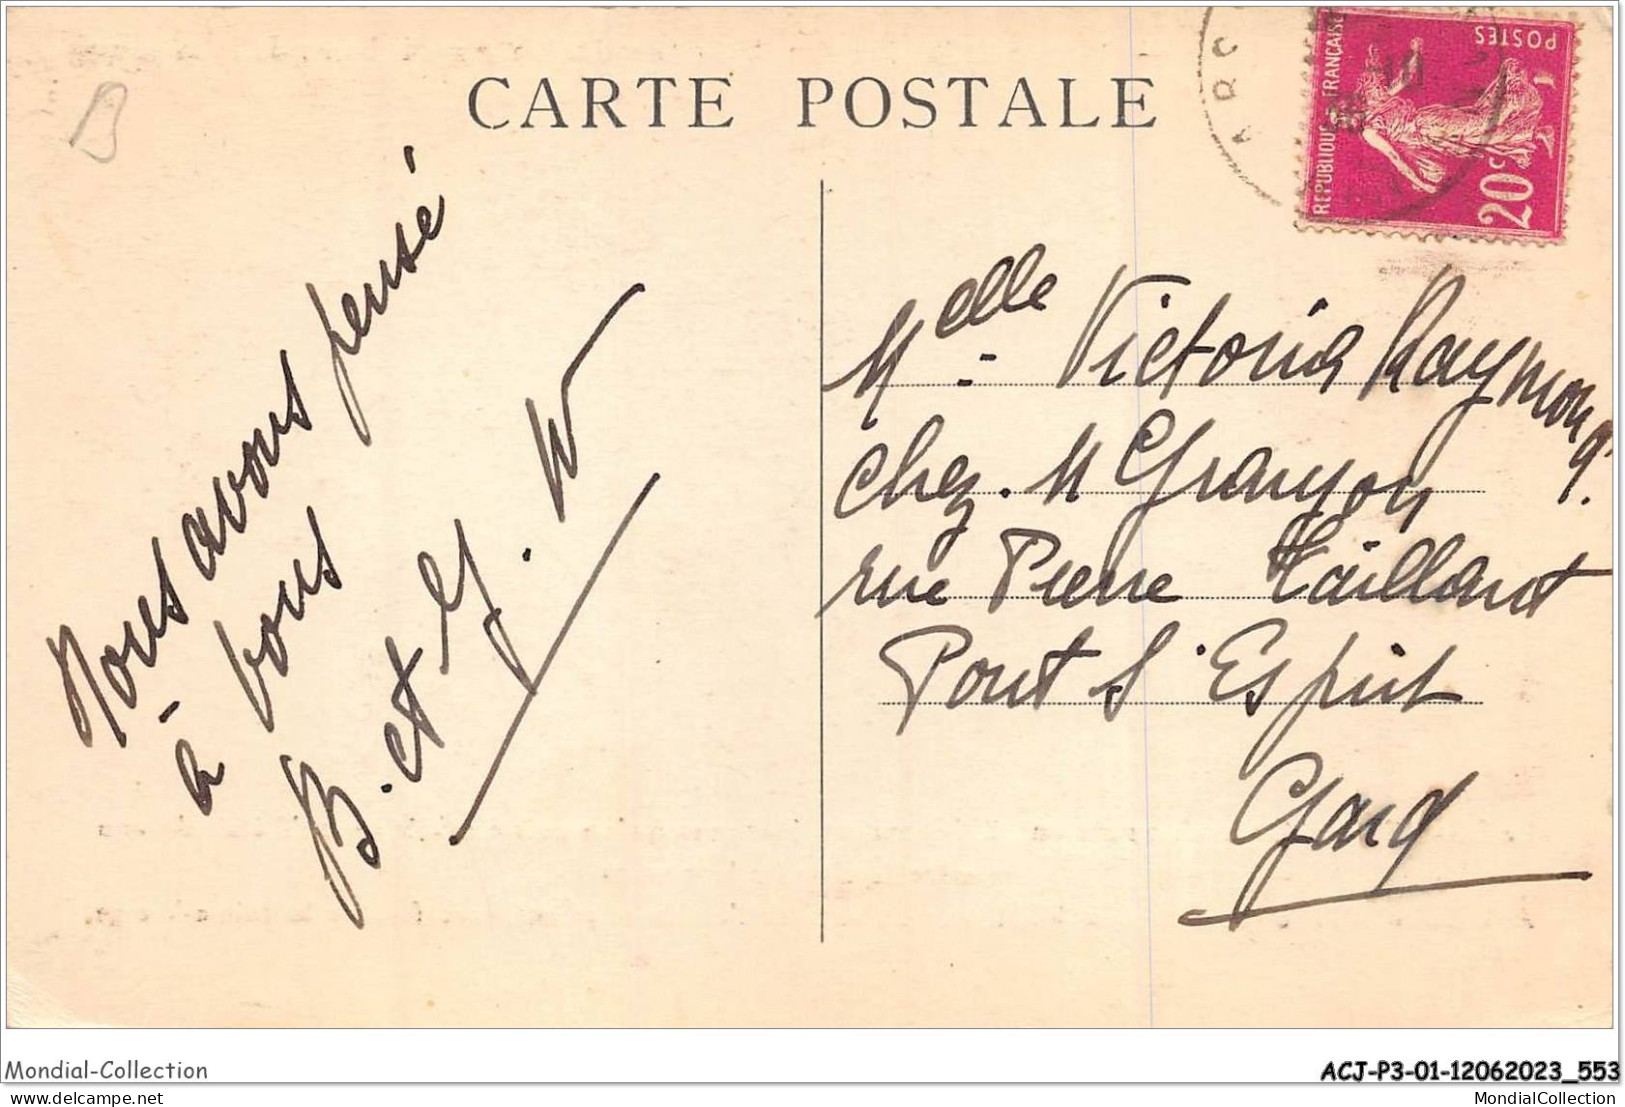 B
CARTE POSTALE
POSTES
REPUBLIQUE FRANÇAISE
20c
ARC
Nous avons pensé
à vous
B. et G. W
Melle Victoria Raymond
chez M Granyon
rue Pierre Taillant
Pont St Esprit
Gard
Mondial-Collection
ACJ-P3-01-12062023_553
delcampe.net
MondialCollection